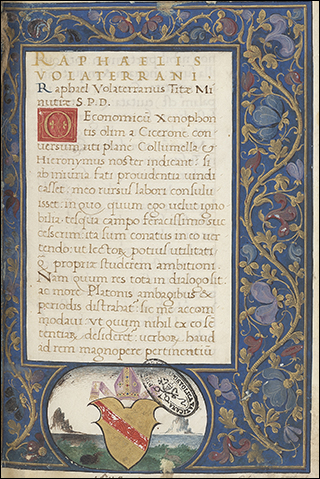 RAPHAELIS
VOLATERRANI.
Raphael Volaterranus Titæ Mi
nutiæ S.P.D.
OEconomicũ Xenophon
tis olim a Cicerone con
uersum, plane Collumella &
Hieronymus noster indicant: si
ab iniuria fati prouidentia uindi
casset: meo rursus labori consulu
isset: in quo, quum ego uelut igno
bilia tesqua campo feracissimo suc
cesserim: ita sum conatus in eo uer
tendo: ut lectorũ potius utilitati
q̃ propriæ studerem ambitioni.
Nam quum res tota in dialogo sit
ac more Platonis ambagibus &
periodis distrahat: sic me accom
modaui, ut quum nihil ex eo sē
tentiæ, desideret: uerborũ haud
ad rem magnopere pertinentiũ